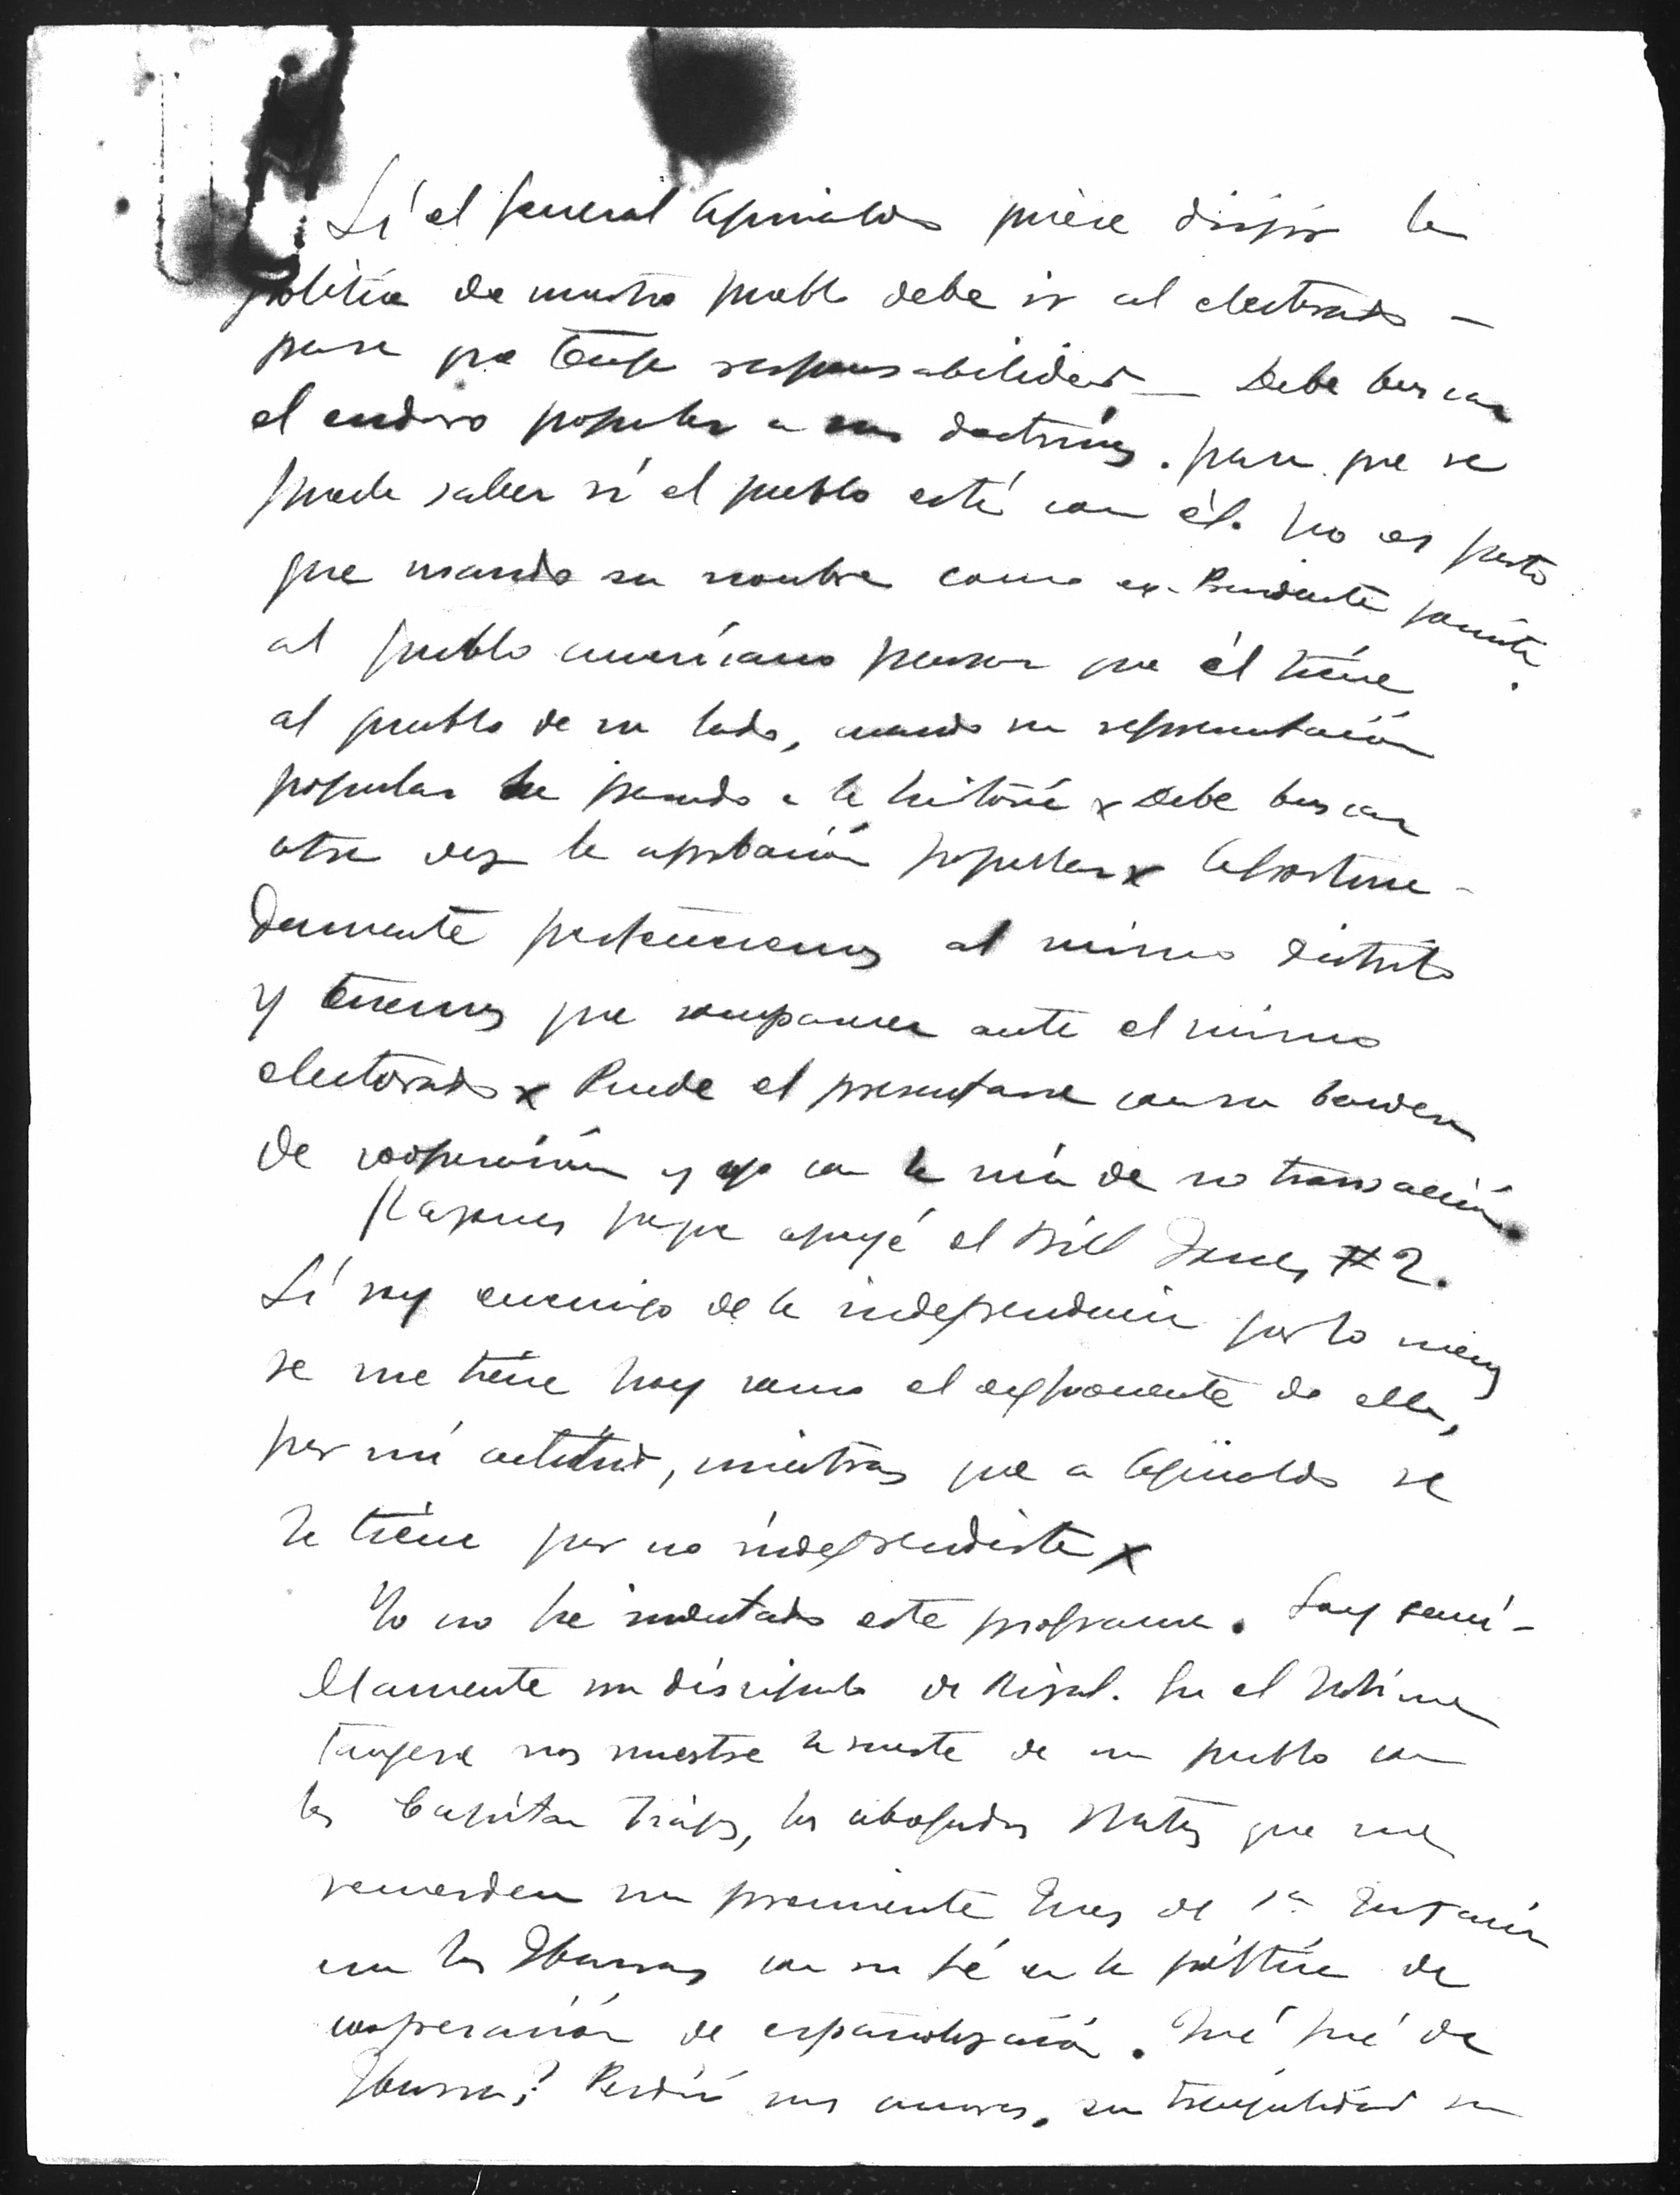 Si el general Aguinaldo quiere dirigir la
política de nuestro pueblo debe ir al electorado —
para que tenga responsabilidad — Debe buscar
el endoso popular a sus doctrinas. para que se
pueda saber si el pueblo está con él. No es justo
que usando su nombre como ex-Presidente permita
al pueblo americano pensar que él tiene
al pueblo de su lado, cuando su representación
popular ha pasado a la historia x Debe buscar
otra vez la aprobación popular x Afortuna-
damente pertenecemos al mismo distrito
y tenemos que comparecer ante el mismo
electorado x Puede el presentarse con su bandera
de cooperación y yo con la mía de no transacción.
Razones porque apoyé el Bill Jones #2.
Si soy enemigo de la independencia por lo menos
se me tiene hoy como el exponente de ella,
por mi actitud, mientras que a Aguinaldo se
le tiene por no independista x
Yo no he inventado este programa. Soy senci-
llamente un discípulo de Rizal. En el Noli me
tangere nos muestra la suerte de un pueblo con
los Capitan Tiago, los abogados que me
recuerdan un prominente Juez de 1a Instancia
con los Ibarras con su fé en la política de
cooperación de españolización. Qué fué de
Ibarra? Perdió sus amores, su tranquilidad su